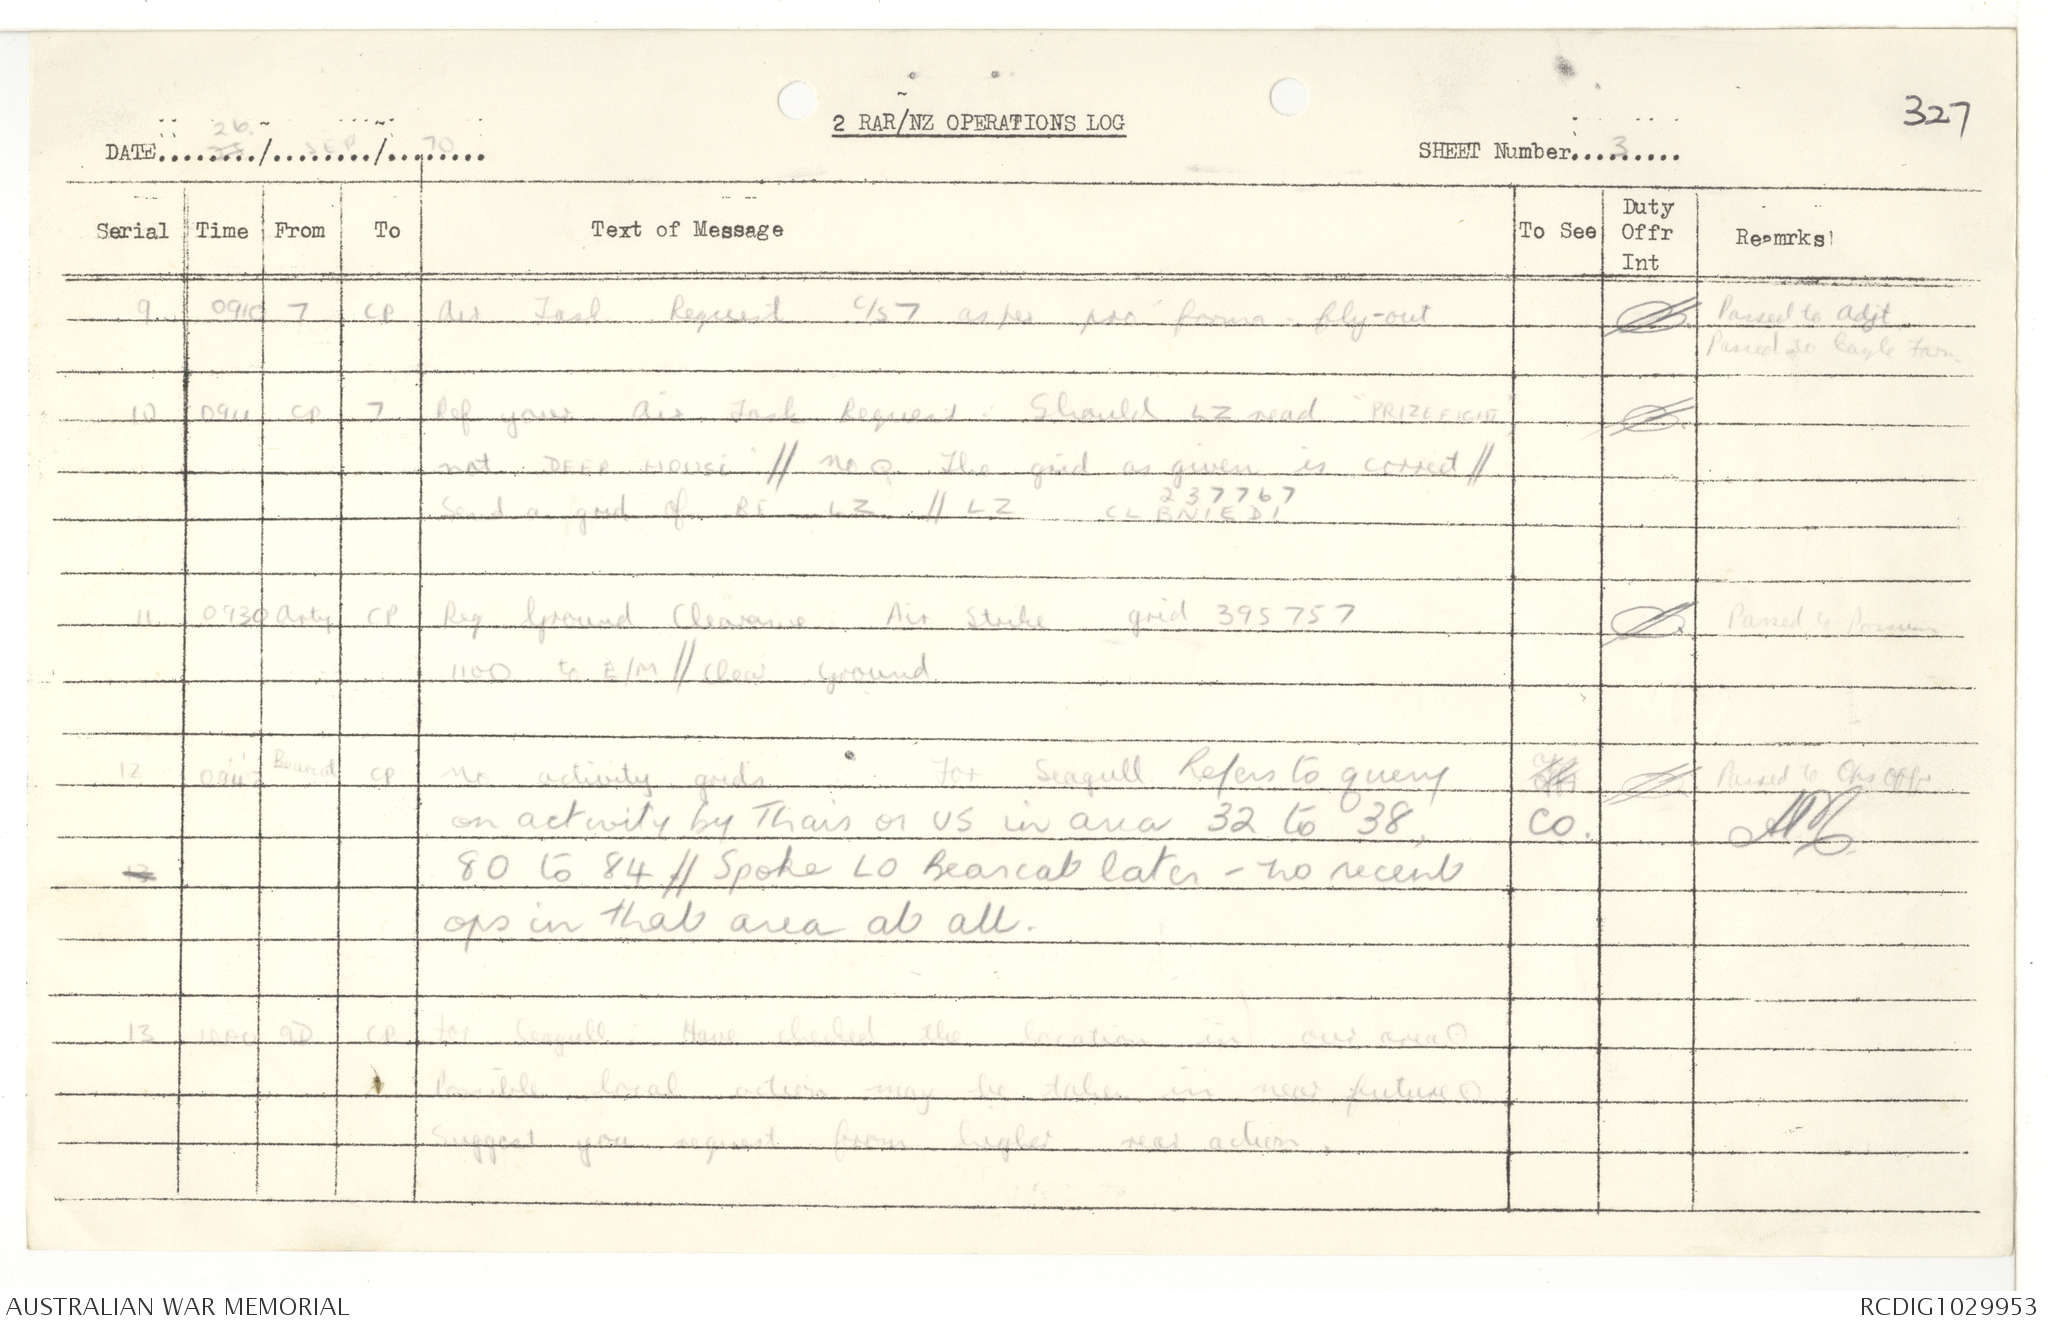 327
2 RAR/NZ OPERATIONS LOG
DATE 26/SEP/70
SHEET Number 3
Serial Time From To Text of Message To See Duty Offr Int Remrks
9 0910 7 CP Air Task Request C/S 7 as per pro forma - fly-out Passed to Adjt
Passed to Eagle Farm
10 0911 CP 7 Ref your Air Task Request. Should LZ read "PRIZEFIGHT"
not DEEP HOUSE // No Q. The grid as given is correct //
237767
Send a grid of LZ // LZ CL BNIEDI
11 0930 Arty CP Req Ground Clearance Air Strike grid 395757 Passed to Possum
1100 to E/M // Clear ground
12 0942 Bearcat CP No activity grids For Seagull Refers to query Passed to Ops Offr
on activity by Thais or US in area 32 to 38, CO.
80 to 84 // Spoke LO Bearcat later - no recent
ops in that area at all.
13 9D CP For Seagull. Have checked the location in our area
Possible local action may be taken in near future
Suggest you request from higher action.
AUSTRALIAN WAR MEMORIAL
RCDIG1029953